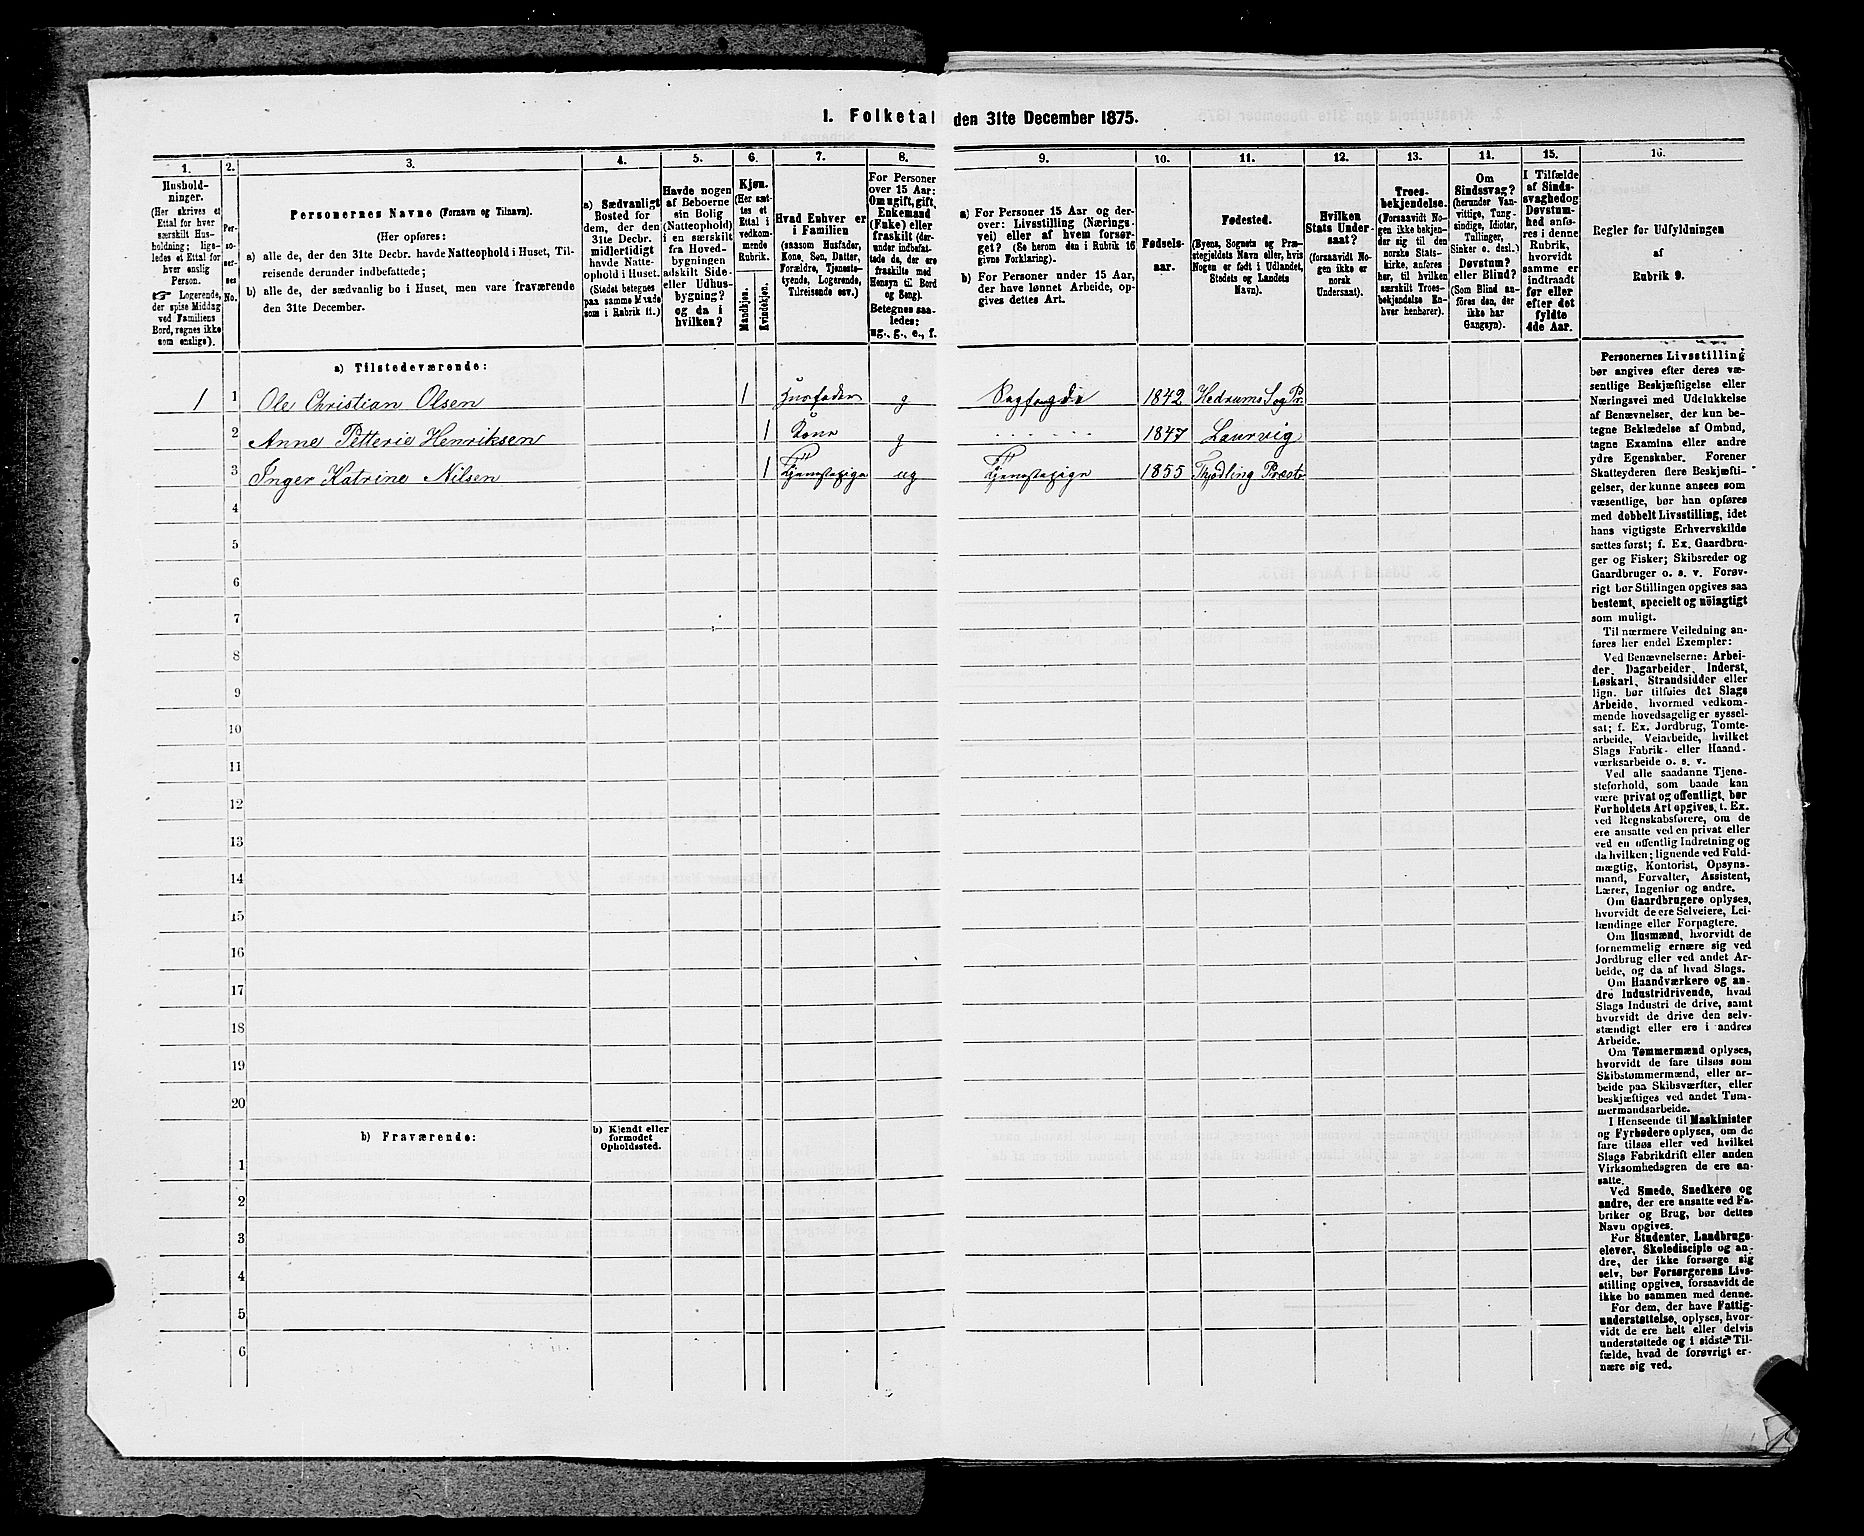 1. Folketal den 31te December 1875.
1. 2. 3. 4. 5. 6. 7. 8. 9. 10. 11. 12. 13. 14. 15. 16.
Husholdninger.
(Her skrives et
Ettal for hver
særskilt Husholdning;
ligeledes et Ettal for
hver enslig
Person.
☞ Logerende,
der spise Middag
ved Familiens
Bord, regnes ikke
som enslige).
Personernes No.
Personernes Navne (Fornavn og Tilnavn).
(Her opføres:
a) alle de, der den 31te Decbr. havde Natteophold i Huset, Tilreisende derunder indbefattede;
b) alle de, der sædvanlig bo i Huset, men vare fraværende
den 31te December.
a) Sædvanligt
Bosted for
dem, der den
31te Decbr.
midlertidigt
havde Natteophold i Huset.
(Stedet betegnes
paa samme Maade
som i Rubrik 11.)
Havde nogen
af Beboerne
sin Bolig
(Natteophold)
i en særskilt
fra Hovedbygningen
adskilt Side-
eller Udhusbygning?
og da i
hvilken?
Kjøn.
(Her sættes et
Ettal i
vedkommende
Rubrik.
Mandkjøn.
Kvindekjøn.
Hvad Enhver er
i Familien
(saasom Husfader,
Kone, Søn, Datter,
Forældre, Tjenestetyende, Logerende,
Tilreisende osv.)
For Personer
over 15 Aar:
Om ugift, gift,
Enkemand
(Enke) eller
fraskilt (derunder indbefattede de, der ere
fraskilte med
Hensyn til Bord
og Seng).
Betegnes saaledes:
ug., g., e., f.
a) For Personer 15 Aar og derover: Livsstilling (Næringsvei) eller af hvem forsørget? (Se herom den i Rubrik 16
givne Forklaring).
b) For Personer under 15 Aar,
der have lønnet Arbeide, opgives dettes Art.
Fødselsaar.
Fødested.
(Byens, Sognets og Præstegjeldets Navn eller, hvis
Nogen er født i Udlandet,
Stedets og Landets
Navn).
Hvilken
Stats Undersaat?
(forsaavidt Nogen ikke er
norsk
Undersaat).
Troesbekjendelse.
(Forsaavidt Nogen ikke bekjender sig til den
norske Statskirke, anføres
her, til hvilken
særskilt Troesbekjendelse Enhver henhører).
Om
Sindssvag?
(herunder Vanvittige, Tungsindige, Idioter,
Tullinger,
Sinker o. desl.)
Døvstum?
eller Blind?
(Som Blind anføres den, der
ikke har
Gangsyn).
I Tilfælde
af Sindssvaghed og
Døvstumhed anføres i denne
Rubrik,
hvorvidt
samme er
indtraadt
før eller
efter det
fyldte
4de Aar.
Regler for Udfyldningen
af
Rubrik 9.
a) Tilstedeværende:
1 1 Ole Christian Olsen 1 Husfader g 1842 Hedrums Sog Pr.
2 Anne Petterie Henriksen 1 Kone g 1847 Laurvig
3 Inger Katrine Nilsen 1 Tjenestepige ug Tjenestepige 1855 Thjødling Præst
4
5
6
7
8
9
10
11
12
13
14
15
16
17
18
19
20
b) Fraværende:
b) Kjendt eller
formodet
Opholdssted.
1
2
3
4
5
6
Personernes Livsstilling
bør angives efter deres væsentlige Beskjæftigelse eller
Næringsvei med Udelukkelse
af Benævnelser, der kun betegne Beklædelse af Ombud,
tagne Examina eller andre
ydre Egenskaber. Forener
Skatteyderen flere Beskjæftigelser, der kunne ansees som
væsentlige, bør han opføres
med dobbelt Livsstilling, idet
hans vigtigste Erhvervskilde
sættes først; f. Ex. Gaardbruger og Fisker; Skibsreder og
Gaardbruger o. s. v. Forøvrigt bør Stillingen opgives saa
bestemt, specielt og nöiagtigt
som muligt.
Til nærmere Veiledning anføres her endel Exempler:
Ved Benævnelserne: Arbeider, Dagarbeider, Inderst,
Løskarl, Strandsidder eller
lign. bør tilføies det Slags
Arbeide, hvormed vedkommende hovedsagelig er sysselsat; f. Ex. Jordbrug, Tomtearbeide, Veiarbeide, hvilket
Slags Fabrik- eller Haandværksarbeide o. s. v.
Ved alle saadanne Tjenesteforhold, som baade kan
være privat og offentligt, bør
Forholdets Art opgives, t. Ex.
ved Regnskabsførere, om de
ere ansatte ved en privat eller
ved en offentlig Indretning og
da hvilken; lignende ved Fuldmægtig, Kontorist, Opsynsmand, Forvalter, Assistent,
Lærer, Ingeniør og andre.
Om Gaardbrugere oplyses,
hvorvidt de ere Selveiere, Leilændinge eller Forpagtere.
Om Husmænd, hvorvidt de
fornemmelig ernære sig ved
Jordbrug eller ved andet Arbeide, og da af hvad Slags.
Om Haandværkere og andre Industridrivende, hvad
Slags Industri de drive, samt
hvorvidt de drive den selvstændigt eller ere i andres
Arbeide.
Om Tømmermænd oplyses,
hvorvidt de fare tilsøs som
Skibstømmermænd, eller arbeide paa Skibsværfter, eller
beskjæftiges ved andet Tømmermandsarbeide.
I Henseende til Maskinister
og Fyrbødere oplyses, om de
fare tilsøs eller ved hvilket
Slags Fabrikdrift eller anden
Virksomhedsgren de ere ansatte.
Ved Smede, Snedkere og
andre, der ere ansatte ved Fabriker og Brug, bør dettes
Navn opgives.
For Studenter, Landbrugselever, Skoledisciple og andre, der ikke forsørge sig
selv, bør Forsørgerens Livsstilling opgives, forsaavidt de
ikke bo sammen med denne.
For dem, der have Fattigunderstøttelse, oplyses, hvorvidt de ere helt eller delvis
understøttede og i sidste Tilfælde, hvad de forøvrigt ernære sig ved.